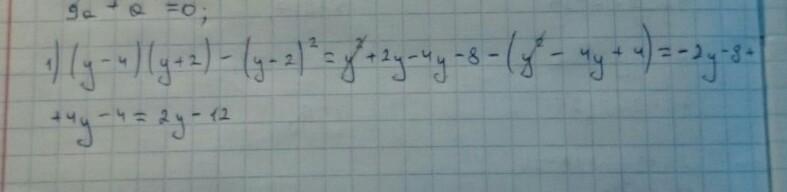 9a + a = 0;
1) (y-4)(y+2)-(y-2)² = y²+2y-4y-8-(y²-4y+4) = -2y-8+
+4y-4 = 2y-12